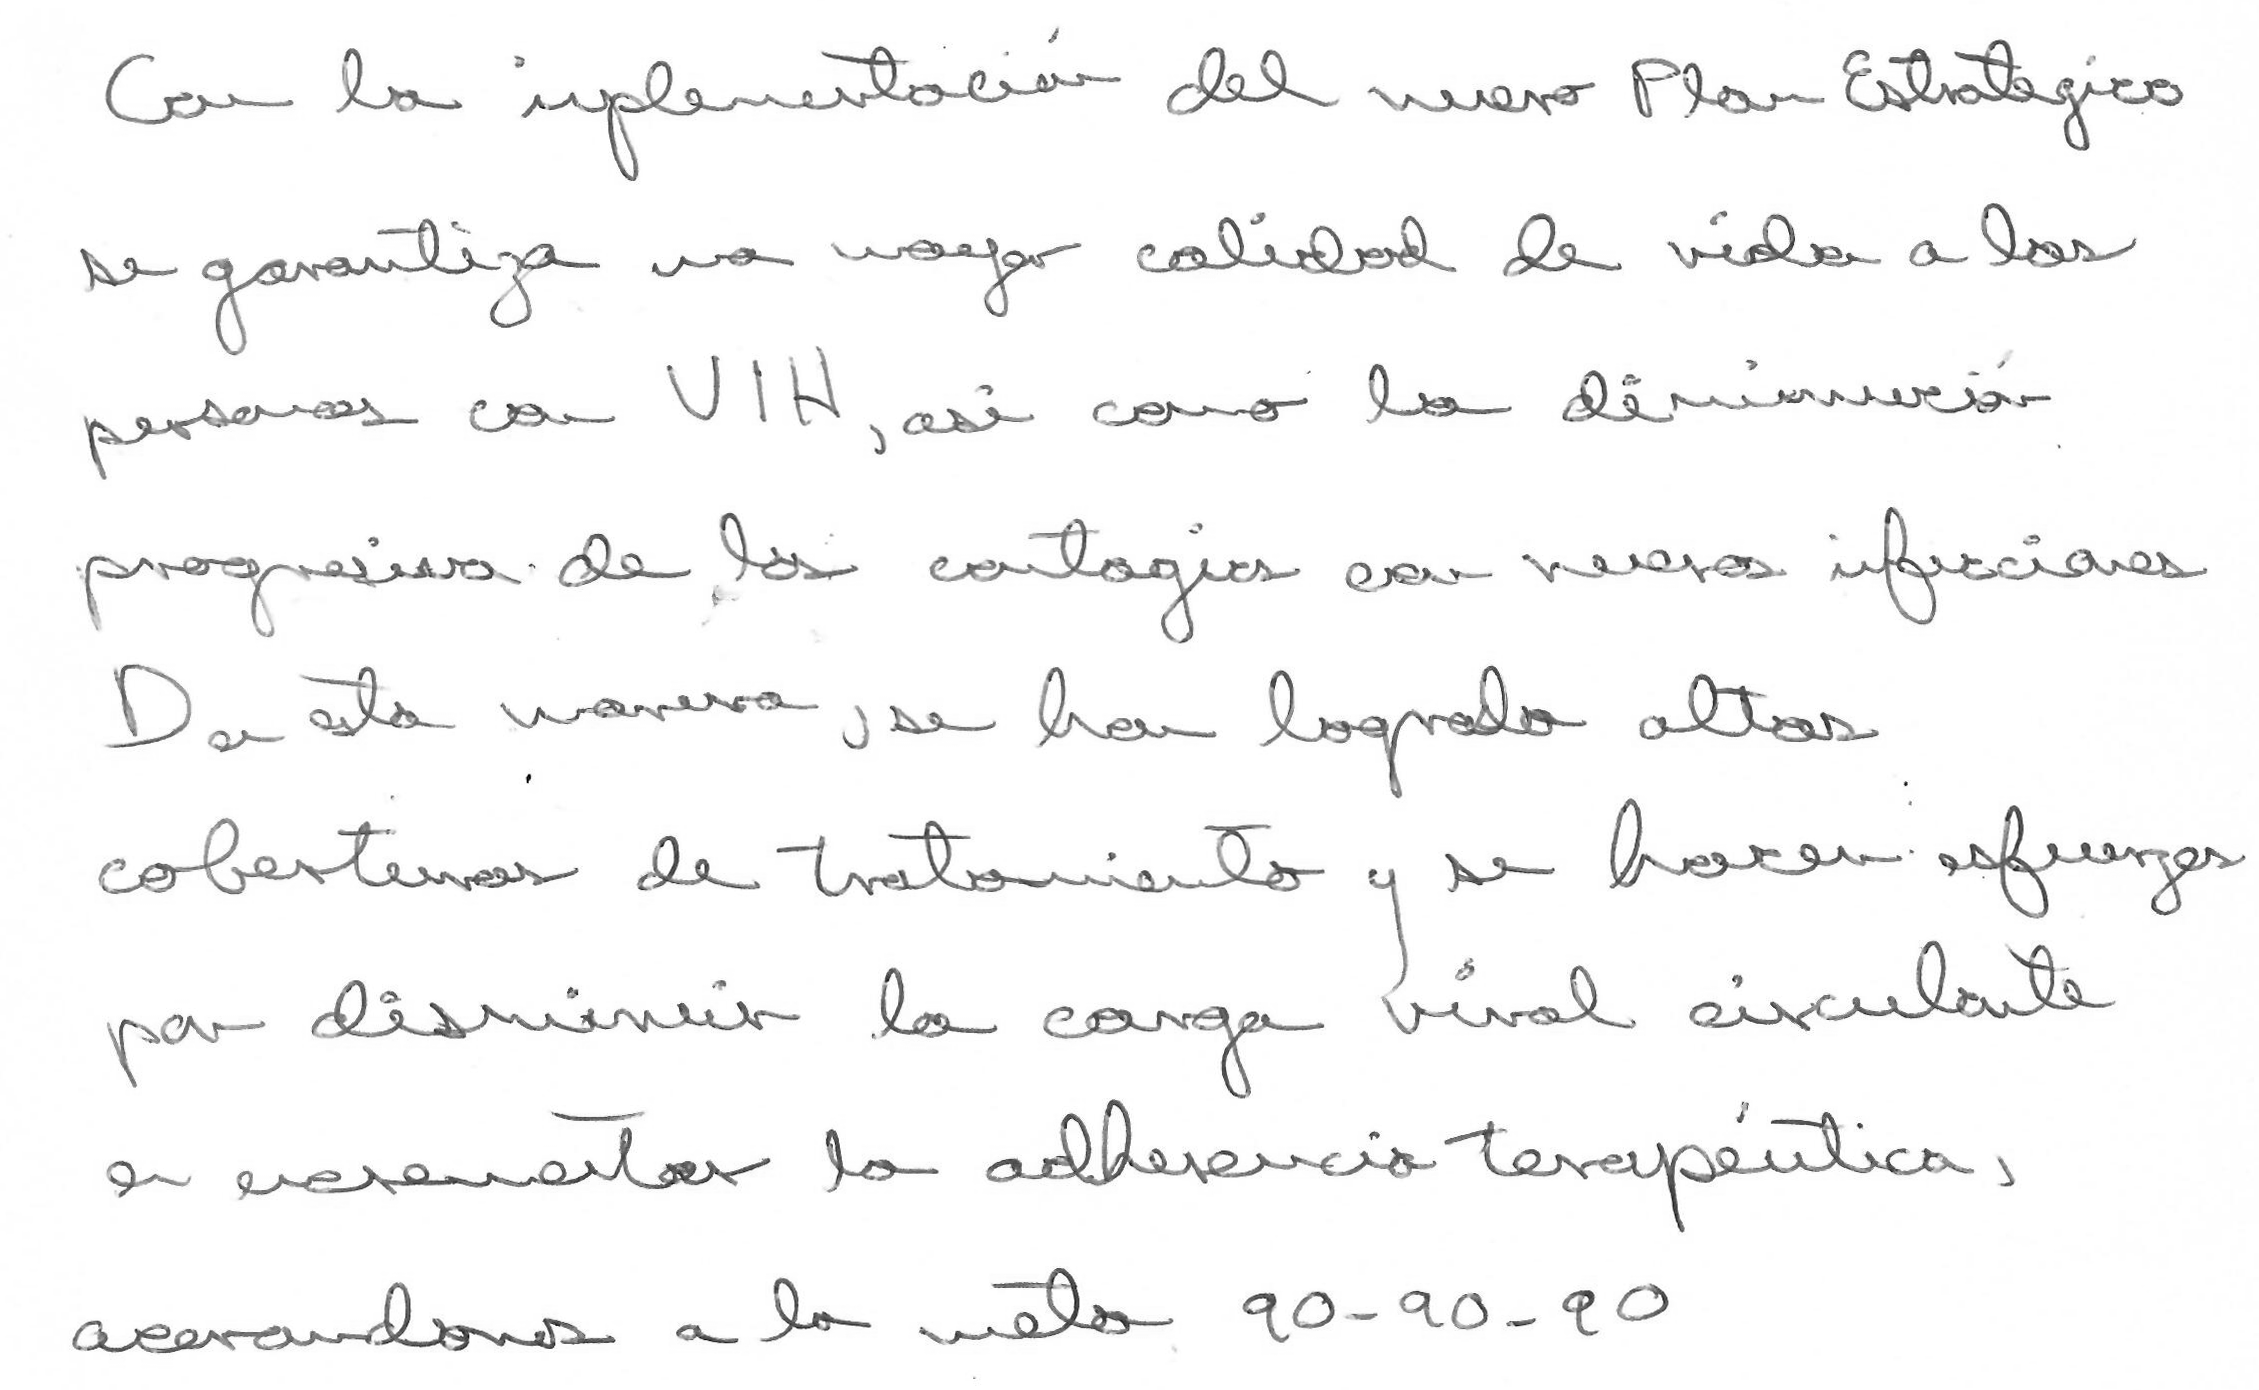 Con la implementación del nuevo Plan Estrategico
se garantiza una mayor calidad de vida a las
personas con VIH, asi como la diminución
progresiva de los contagios con nuevas infecciones
De esta manera, se han logrado altas
coberturas de tratamiento y se hacen esfuerzos
por disminuir la carga viral circulante
e incrementar la adherencia terapéutica,
acercandonos a la meta 90-90-90